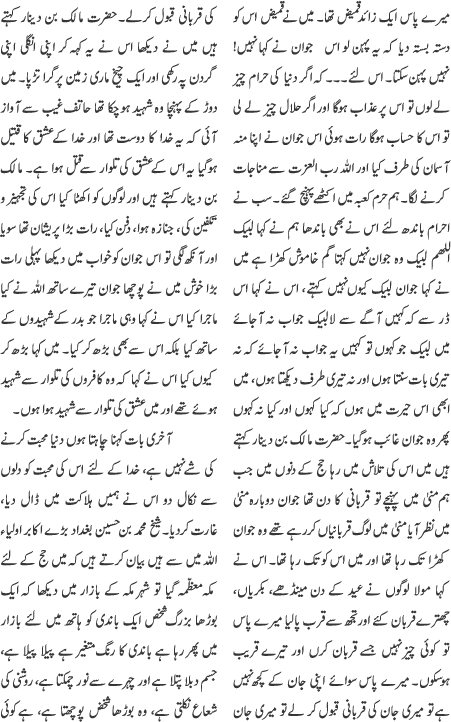 میرے پاس ایک زائد قمیض تھا۔ میں نے قمیض اس کو
دستہ بستہ دیا کہ یہ پہن لو اس جوان نے کہا نہیں!
نہیں پہن سکتا۔ اس لئے ۔۔۔ کہ اگر دنیا کی حرام چیز
لے لوں تو اس پر عذاب ہوگا اور اگر حلال چیز لے لی
تو اس کا حساب ہوگا رات ہوئی اس جوان نے اپنا منہ
آسمان کی طرف کیا اور اللہ رب العزت سے مناجات
کرنے لگا۔ ہم حرم کعبہ میں اکٹھے پہنچ گئے۔ سب نے
احرام باندھ لئے اس نے بھی باندھا ہم نے کہا لبیک
اللھم لبیک وہ جوان نہیں کہتا گم خاموش کھڑا ہے میں
نے کہا جوان لبیک کیوں نہیں کہتے، اس نے کہا اس
ڈر سے کہ کہیں آگے سے لا لبیک جواب نہ آجائے
میں لبیک جو کہوں تو کہیں یہ جواب نہ آجائے کہ نہ
تیری بات سنتا ہوں اور نہ تیری طرف دیکھتا ہوں، میں
ابھی اس حیرت میں ہوں کہ کیا کہوں اور کیا نہ کہوں
پھر وہ جوان غائب ہوگیا۔ حضرت مالک بن دینار کہتے
ہیں میں اس کی تلاش میں رہا حج کے دنوں میں جب
ہم منیٰ میں پہنچے تو قربانی کا دن تھا جوان دوبارہ منیٰ
میں نظر آیا منیٰ میں لوگ قربانیاں کررہے تھے وہ جوان
کھڑا تک رہا تھا اور میں اس کو تک رہا تھا۔ اس نے
کہا مولا لوگوں نے عید کے دن مینڈھے، بکریاں،
چھترے قربان کئے اور تجھ سے قرب پالیا میرے پاس
تو کوئی چیز نہیں جسے قربان کروں اور تیرے قریب
ہوسکوں۔ میرے پاس سوائے اپنی جان کے کچھ نہیں
ہے تو میری جان کی قربانی قبول کرلے تو میری جان
کی قربانی قبول کرلے۔ حضرت مالک بن دینار کہتے
ہیں میں نے دیکھا اس نے یہ کہہ کر اپنی انگلی اپنی
گردن پہ رکھی اور ایک چیخ ماری زمین پر گرا تڑپا۔ میں
دوڑ کے پہنچا وہ شہید ہوچکا تھا ہاتف غیب سے آواز
آئی کہ یہ خدا کا دوست تھا اور خدا کے عشق کا قتیل
ہوگیا یہ اس کے عشق کی تلوار سے قتل ہوا ہے۔ مالک
بن دینار کہتے ہیں اور لوگوں کو اکٹھا کیا اس کی تجہیز و
تکفین کی، جنازہ ہوا، دفن کیا، رات بڑا پریشان تھا سویا
اور آنکھ لگی تو اس جوان کو خواب میں دیکھا پہلی رات
بڑا خوش میں نے پوچھا جوان تیرے ساتھ اللہ نے کیا
ماجرا کیا اس نے کہا وہی ماجرا جو بدر کے شہیدوں کے
ساتھ کیا بلکہ اس سے بھی بڑھ کر کیا۔ میں کہا بڑھ کر
کیوں کیا اس نے کہا کہ وہ کافروں کی تلوار سے شہید
ہوئے تھے اور میں عشق کی تلوار سے شہید ہوا ہوں۔
آخری بات کہنا چاہتا ہوں دنیا محبت کرنے
کی شے نہیں ہے، خدا کے لئے اس کی محبت کو دلوں
سے نکال دو اس نے ہمیں ہلاکت میں ڈال دیا،
غارت کردیا۔ شیخ محمد بن حسین بغداد بڑے اکابر اولیاء
اللہ میں سے ہیں بیان کرتے ہیں کہ میں حج کے لئے
مکہ معظمہ گیا تو شہر مکہ کے بازار میں دیکھا کہ ایک
بوڑھا بزرگ شخص ایک باندی کو ہاتھ میں لئے بازار
میں پھر رہا ہے باندی کا رنگ متغیر ہے پیلا پیلا ہے،
جسم دبلا پتلا ہے اور چہرے سے نور چمکتا ہے، روشنی کی
شعاع نکلتی ہے، وہ بوڑھا شخص پوچھتا ہے، ہے کوئی